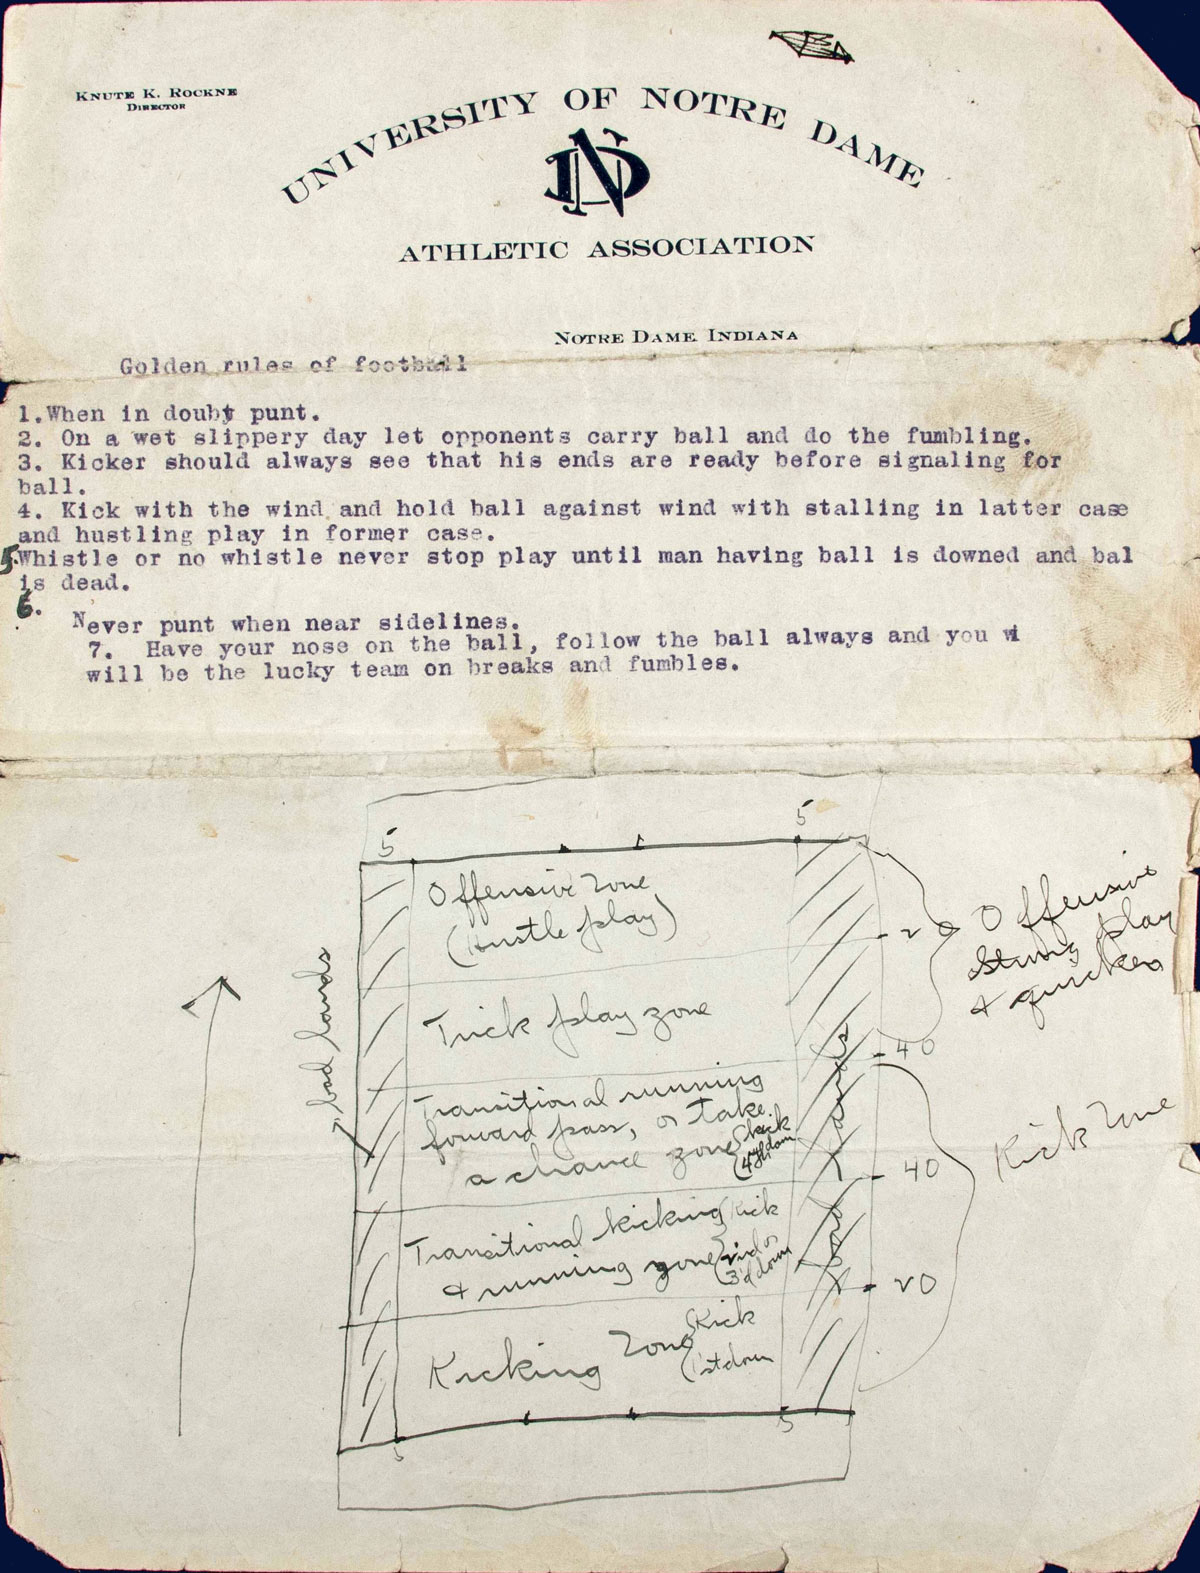 KNUTE K. ROCKNE
DIRECTOR
UNIVERSITY OF NOTRE DAME
ND
ATHLETIC ASSOCIATION
NOTRE DAME, INDIANA
Golden rules of football
1.When in doubt punt.
2. On a wet slippery day let opponents carry ball and do the fumbling.
3. Kicker should always see that his ends are ready before signaling for
ball.
4. Kick with the wind and hold ball against wind with stalling in latter case
and hustling play in former case.
5.Whistle or no whistle never stop play until man having ball is downed and bal
is dead.
6.
Never punt when near sidelines.
7. Have your nose on the ball, follow the ball always and you wi
will be the lucky team on breaks and fumbles.
5
5
Offensive Zone
(Hustle play)
20
Offensive
Strong play
& quickes
Trick play zone
40
bad lands
Transitional running
forward pass, or take
a chance zone (kick
4th down
bad lands
Kick Zone
40
Transitional kicking
& running zone (Kick
2nd or
3'd down
20
Kicking Zone (Kick
1st down
5
5